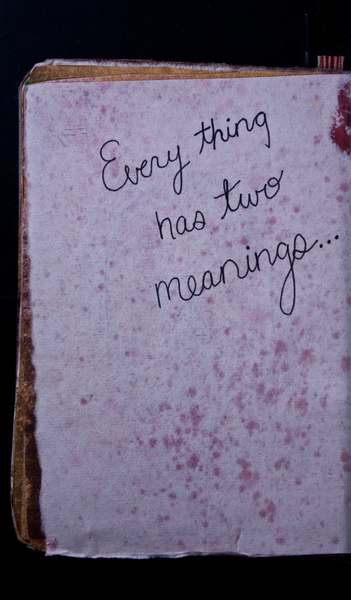 Every thing
has two
meanings...